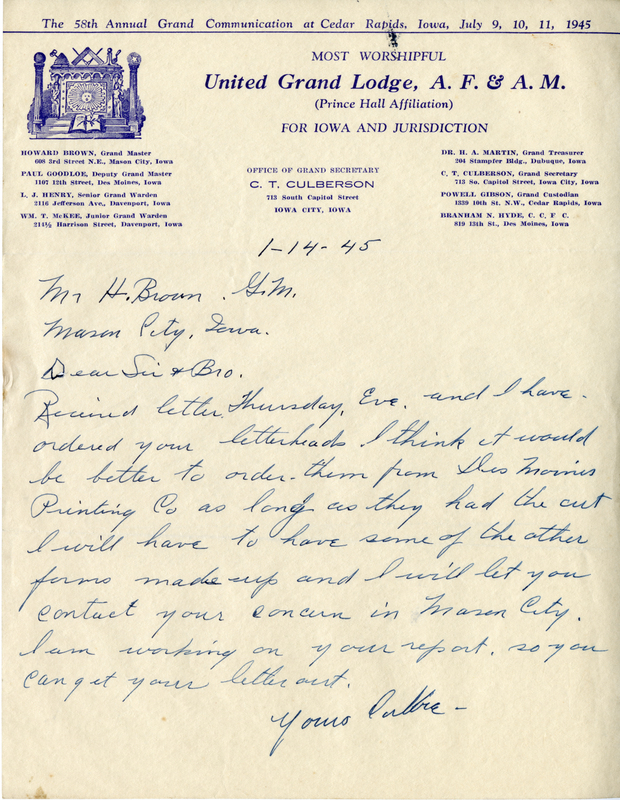 The 58th Annual Grand Communication at Cedar Rapids, Iowa, July 9, 10, 11, 1945
MOST WORSHIPFUL
United Grand Lodge, A. F. & A. M.
(Prince Hall Affiliation)
FOR IOWA AND JURISDICTION
HOWARD BROWN, Grand Master
608 3rd Street N.E., Mason City, Iowa
PAUL GOODLOE, Deputy Grand Master
1107 12th Street, Des Moines, Iowa
L. J. HENRY, Senior Grand Warden
2116 Jefferson Ave., Davenport, Iowa
WM. T. McKEE, Junior Grand Warden
214½ Harrison Street, Davenport, Iowa
OFFICE OF GRAND SECRETARY
C. T. CULBERSON
713 South Capitol Street
IOWA CITY, IOWA
DR. H. A. MARTIN, Grand Treasurer
204 Stampfer Bldg., Dubuque, Iowa
C. T. CULBERSON, Grand Secretary
713 So. Capitol Street, Iowa City, Iowa
POWELL GIBSON, Grand Custodian
1339 10th St. N.W., Cedar Rapids, Iowa
BRANHAM N. HYDE, C. C. F. C.
819 13th St., Des Moines, Iowa
1-14-45
Mr H. Brown. G.M.
Mason City, Iowa.
Dear Sir & Bro.
Received letter Thursday, Eve. and I have-
ordered your letterheads I think it would
be better to order-them from Des Moines
Printing Co as long as they had the cut
I will have to have some of the other
forms made-up and I will let you
contact your concern in Mason City.
I am working on your report. so you
can get your letter out.
Yours